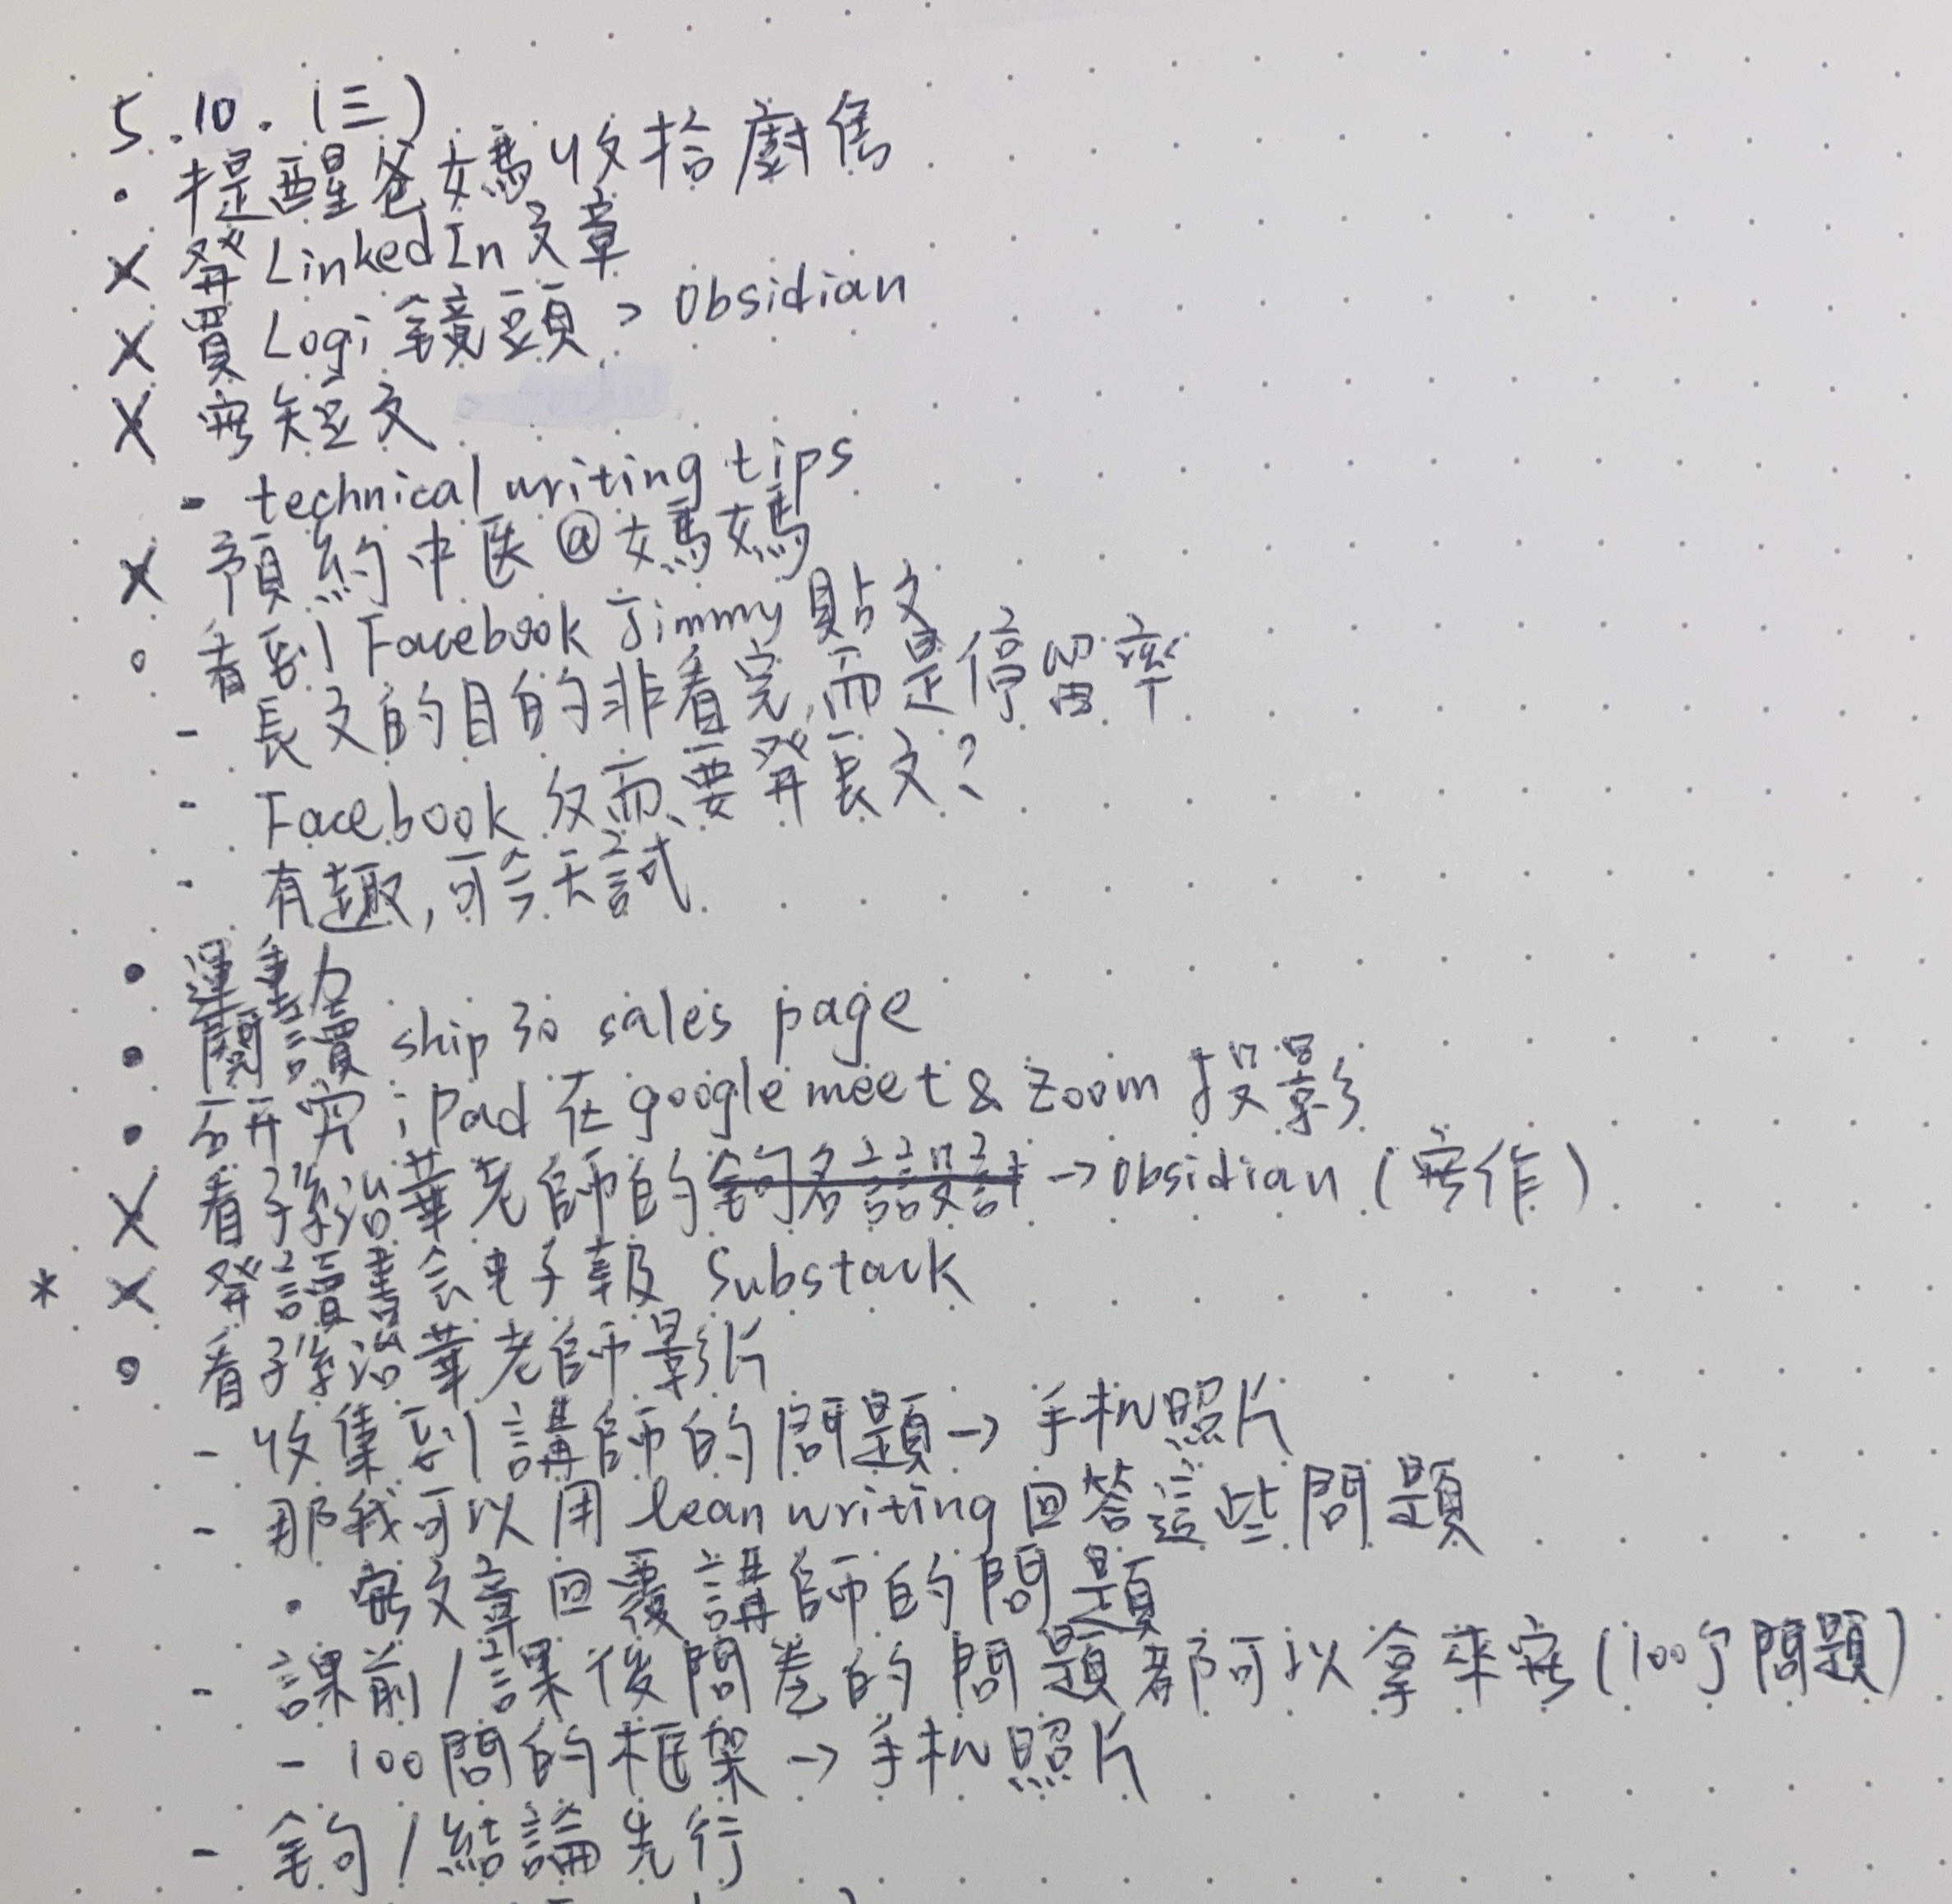 5.10.(三)
• 提醒爸媽收拾廚房
X 發 LinkedIn 文章
X 買 Logi 鏡頭 > Obsidian
X 寫短文
- technical writing tips
X 預約中医@媽媽
○ 看到 Facebook Jimmy 貼文
- 長文的目的非看完,而是停留率
- Facebook 反而要發長文?
- 有趣,可今天試
• 運動
• 閱讀 ship 30 sales page
• 研究 iPad 在 google meet & zoom 投影
X 看孫治華老師的鉤名話設計 → Obsidian (寫作)
* X 發讀書会电子報 Substack
○ 看孫治華老師影片
- 收集到講師的問題 → 手机照片
- 那我可以用 lean writing 回答這些問題
• 寫文章回覆講師的問題
- 課前/課後問卷的問題都可以拿來寫 (100个問題)
- 100問的框架 → 手机照片
- 金句/結論先行